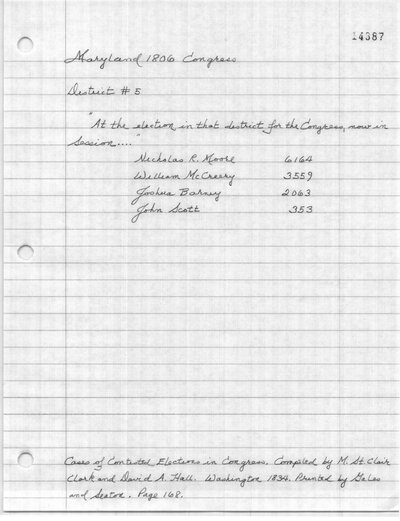 14387
Maryland 1806 Congress
District # 5
"At the election in that district for the Congress, now in
Session...."
Nicholas R. Moore 6164
William McCreery 3559
Joshua Barney 2063
John Scott 353
Cases of Contested Elections in Congress. Compiled by M. St. Clair
Clark and David A. Hall. Washington 1834. Printed by Gales
and Seaton. Page 168.